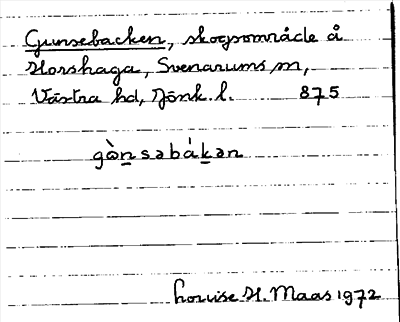 Gunsebacken, skogsområde å
Horshaga, Svenarums sn,
Västra hd, Jönk. l. 875
gònsəbákən
Louise H. Maas 1972